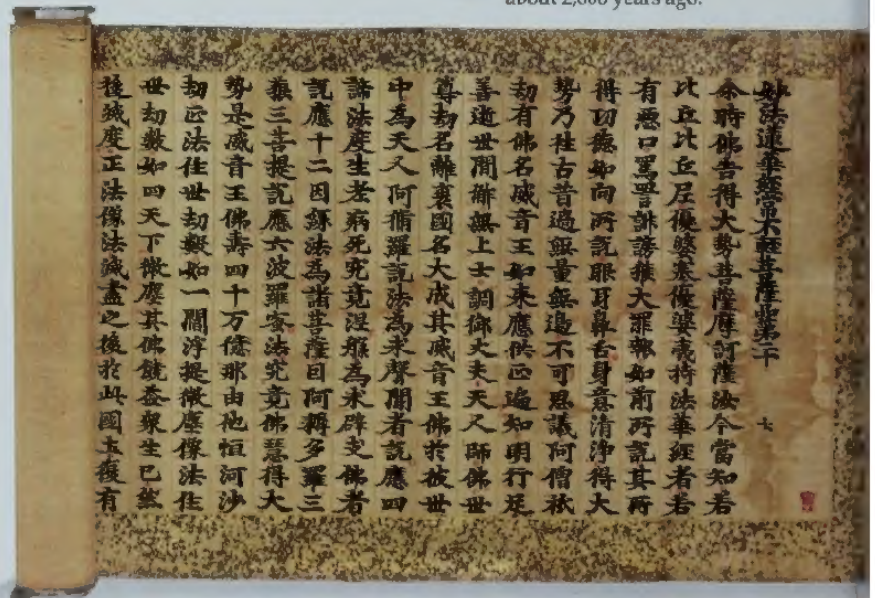 about 2,600 years ago.
妙法蓮華經常不輕菩薩品第二十 七
尒時佛告得大勢菩薩摩訶薩汝今當知若
比丘比丘尼優婆塞優婆夷持法華經者若
有惡口罵詈誹謗獲大罪報如前所說其所
得功德如向所說眼耳鼻舌身意清淨得大
勢乃往古昔過無量無邊不可思議阿僧祇
劫有佛名威音王如来應供正遍知明行足
善逝世間解無上士調御丈夫天人師佛世
尊劫名離衰國名大成其威音王佛於彼世
中為天人阿脩羅說法為求聲聞者說應四
諦法度生老病死究竟涅槃為求辟支佛者
說應十二因緣法為諸菩薩因阿耨多羅三
藐三菩提說應六波羅蜜法究竟佛慧得大
勢是威音王佛壽四十万億那由他恒河沙
劫正法住世劫數如一閻浮提微塵像法住
世劫數如四天下微塵其佛饒益衆生已然
後滅度正法像法滅盡之後於此國土復有